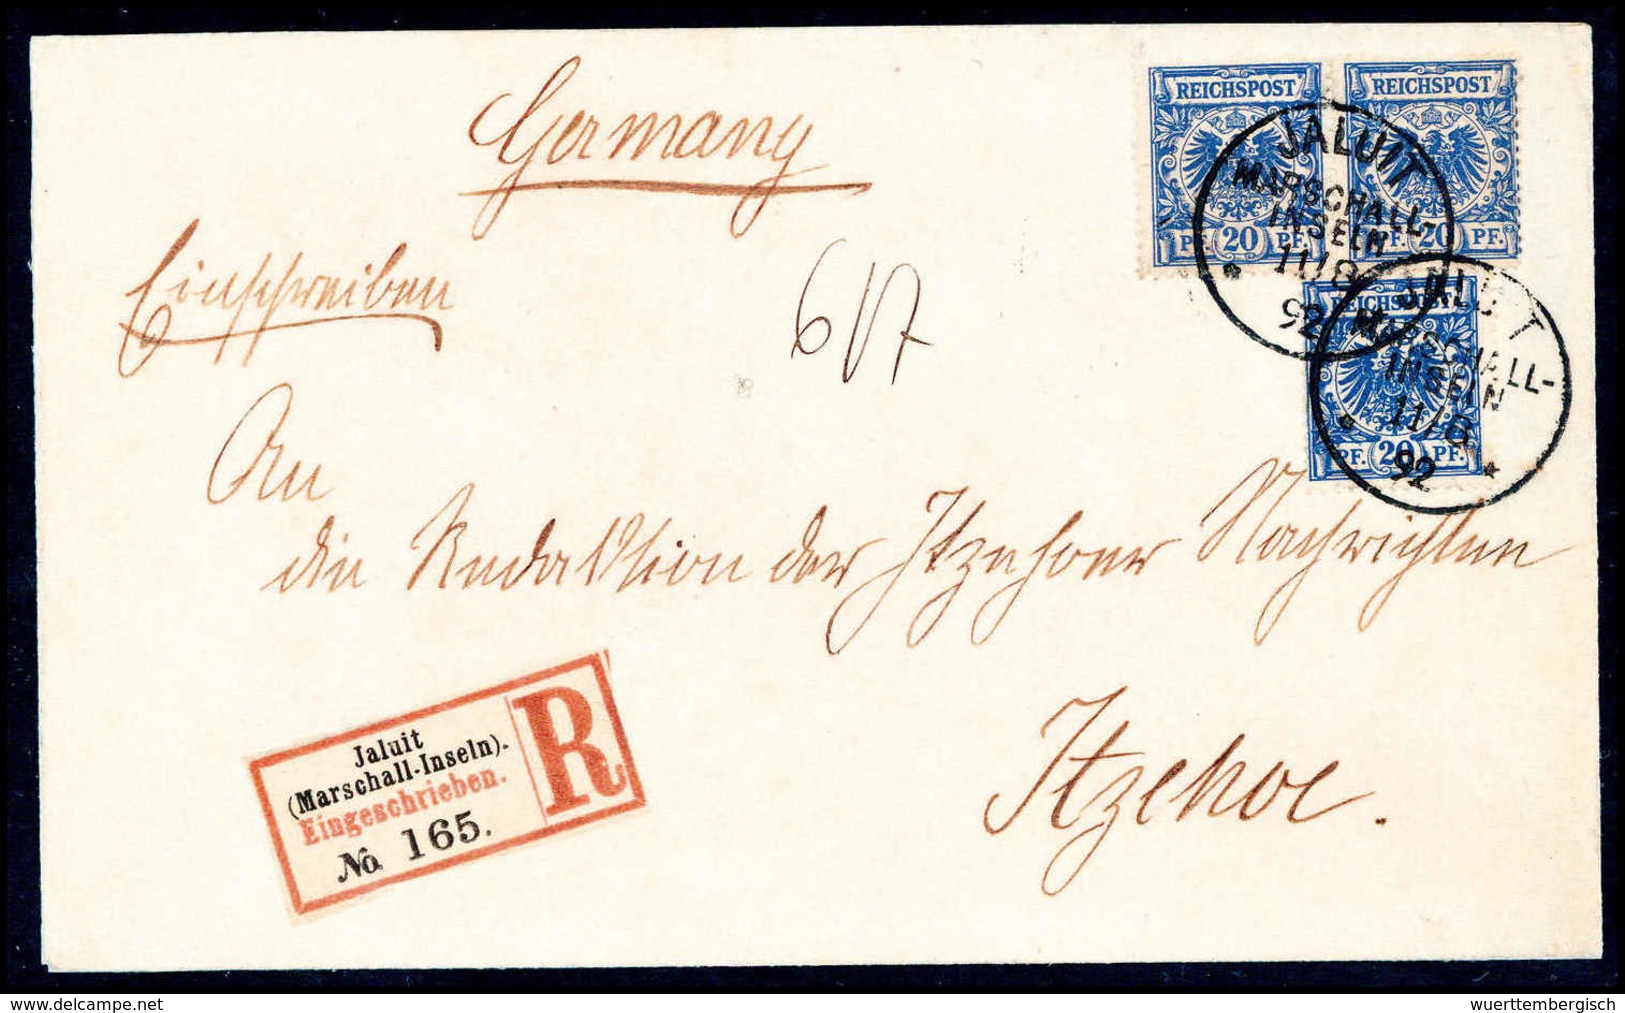 Germany
Einschreiben
6/7
An
die Redaktion der Itzehoer Nachrichten
Itzehoe.
REICHSPOST
PF. 20 PF.
REICHSPOST
PF. 20 PF.
REICHSPOST
PF. 20 PF.
JALUIT
MARSCHALL-
INSELN
11/8
92
JALUIT
MARSCHALL-
INSELN
11/8
92
Jaluit
(Marschall-Inseln).
Eingeschrieben.
No. 165.
R
delcampe.net
wuerttembergisch